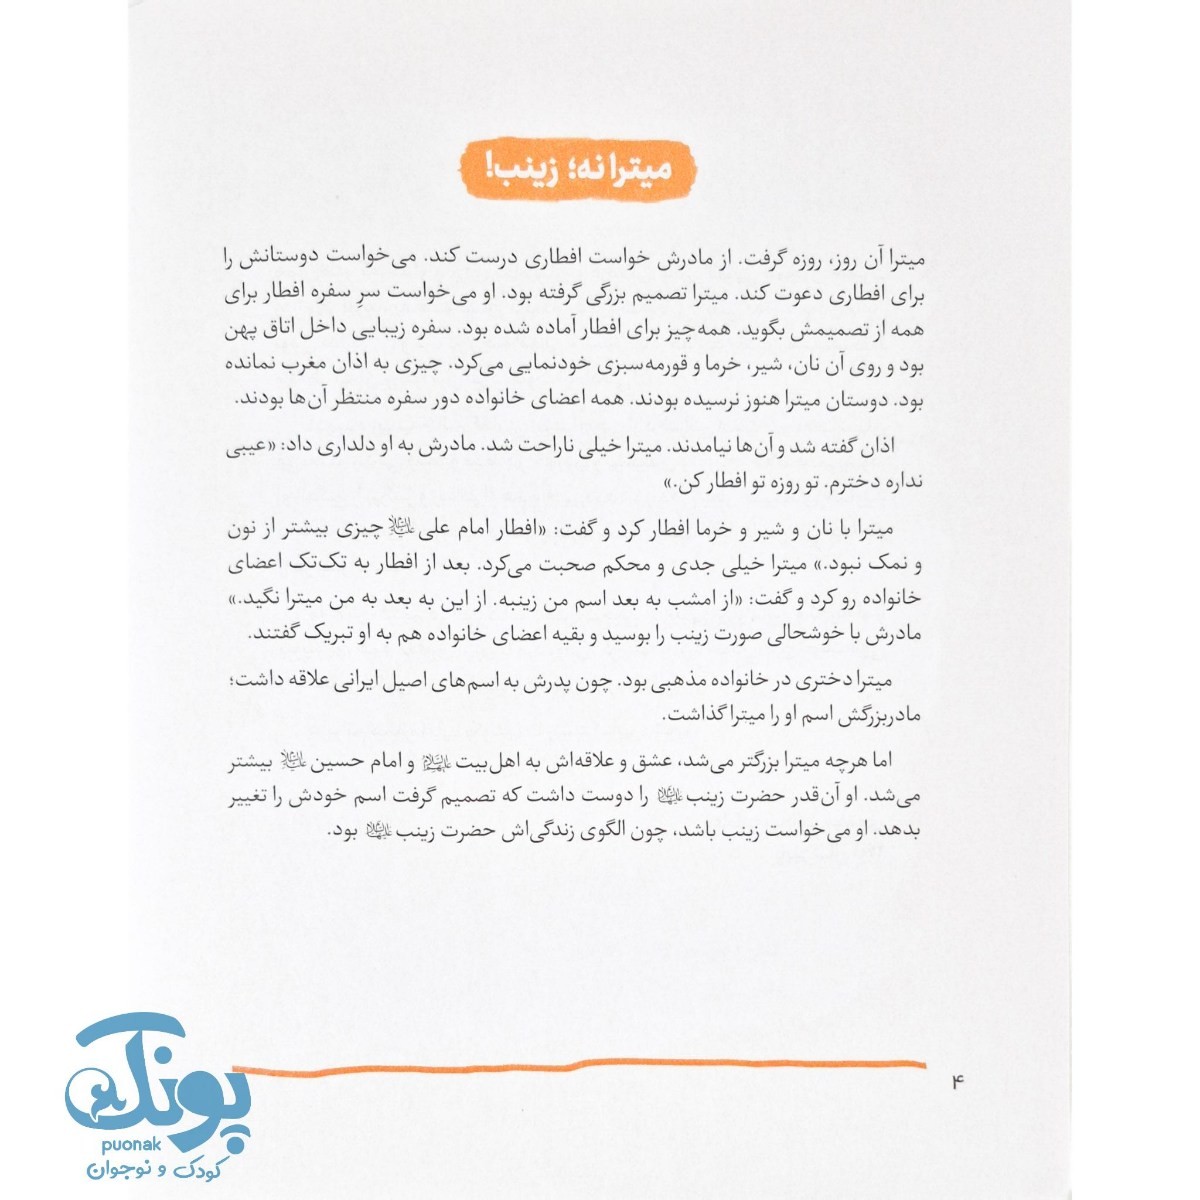 میترا نه؛ زینب!
میترا آن روز، روزه گرفت. از مادرش خواست افطاری درست کند. می‌خواست دوستانش را
برای افطاری دعوت کند. میترا تصمیم بزرگی گرفته بود. او می‌خواست سرِ سفره افطار برای
همه از تصمیمش بگوید. همه‌چیز برای افطار آماده شده بود. سفره زیبایی داخل اتاق پهن
بود و روی آن نان، شیر، خرما و قورمه‌سبزی خودنمایی می‌کرد. چیزی به اذان مغرب نمانده
بود. دوستان میترا هنوز نرسیده بودند. همه اعضای خانواده دور سفره منتظر آن‌ها بودند.
اذان گفته شد و آن‌ها نیامدند. میترا خیلی ناراحت شد. مادرش به او دلداری داد: «عیبی
نداره دخترم. تو روزه تو افطار کن.»
میترا با نان و شیر و خرما افطار کرد و گفت: «افطار امام علی علیه‌السلام چیزی بیشتر از نون
و نمک نبود.» میترا خیلی جدی و محکم صحبت می‌کرد. بعد از افطار به تک‌تک اعضای
خانواده رو کرد و گفت: «از امشب به بعد اسم من زینبه. از این به بعد به من میترا نگید.»
مادرش با خوشحالی صورت زینب را بوسید و بقیه اعضای خانواده هم به او تبریک گفتند.
میترا دختری در خانواده مذهبی بود. چون پدرش به اسم‌های اصیل ایرانی علاقه داشت؛
مادربزرگش اسم او را میترا گذاشت.
اما هرچه میترا بزرگتر می‌شد، عشق و علاقه‌اش به اهل‌بیت علیهم‌السلام و امام حسین علیه‌السلام بیشتر
می‌شد. او آن‌قدر حضرت زینب علیهاالسلام را دوست داشت که تصمیم گرفت اسم خودش را تغییر
بدهد. او می‌خواست زینب باشد، چون الگوی زندگی‌اش حضرت زینب علیهاالسلام بود.
۴
پونک
puonak
کودک و نوجوان